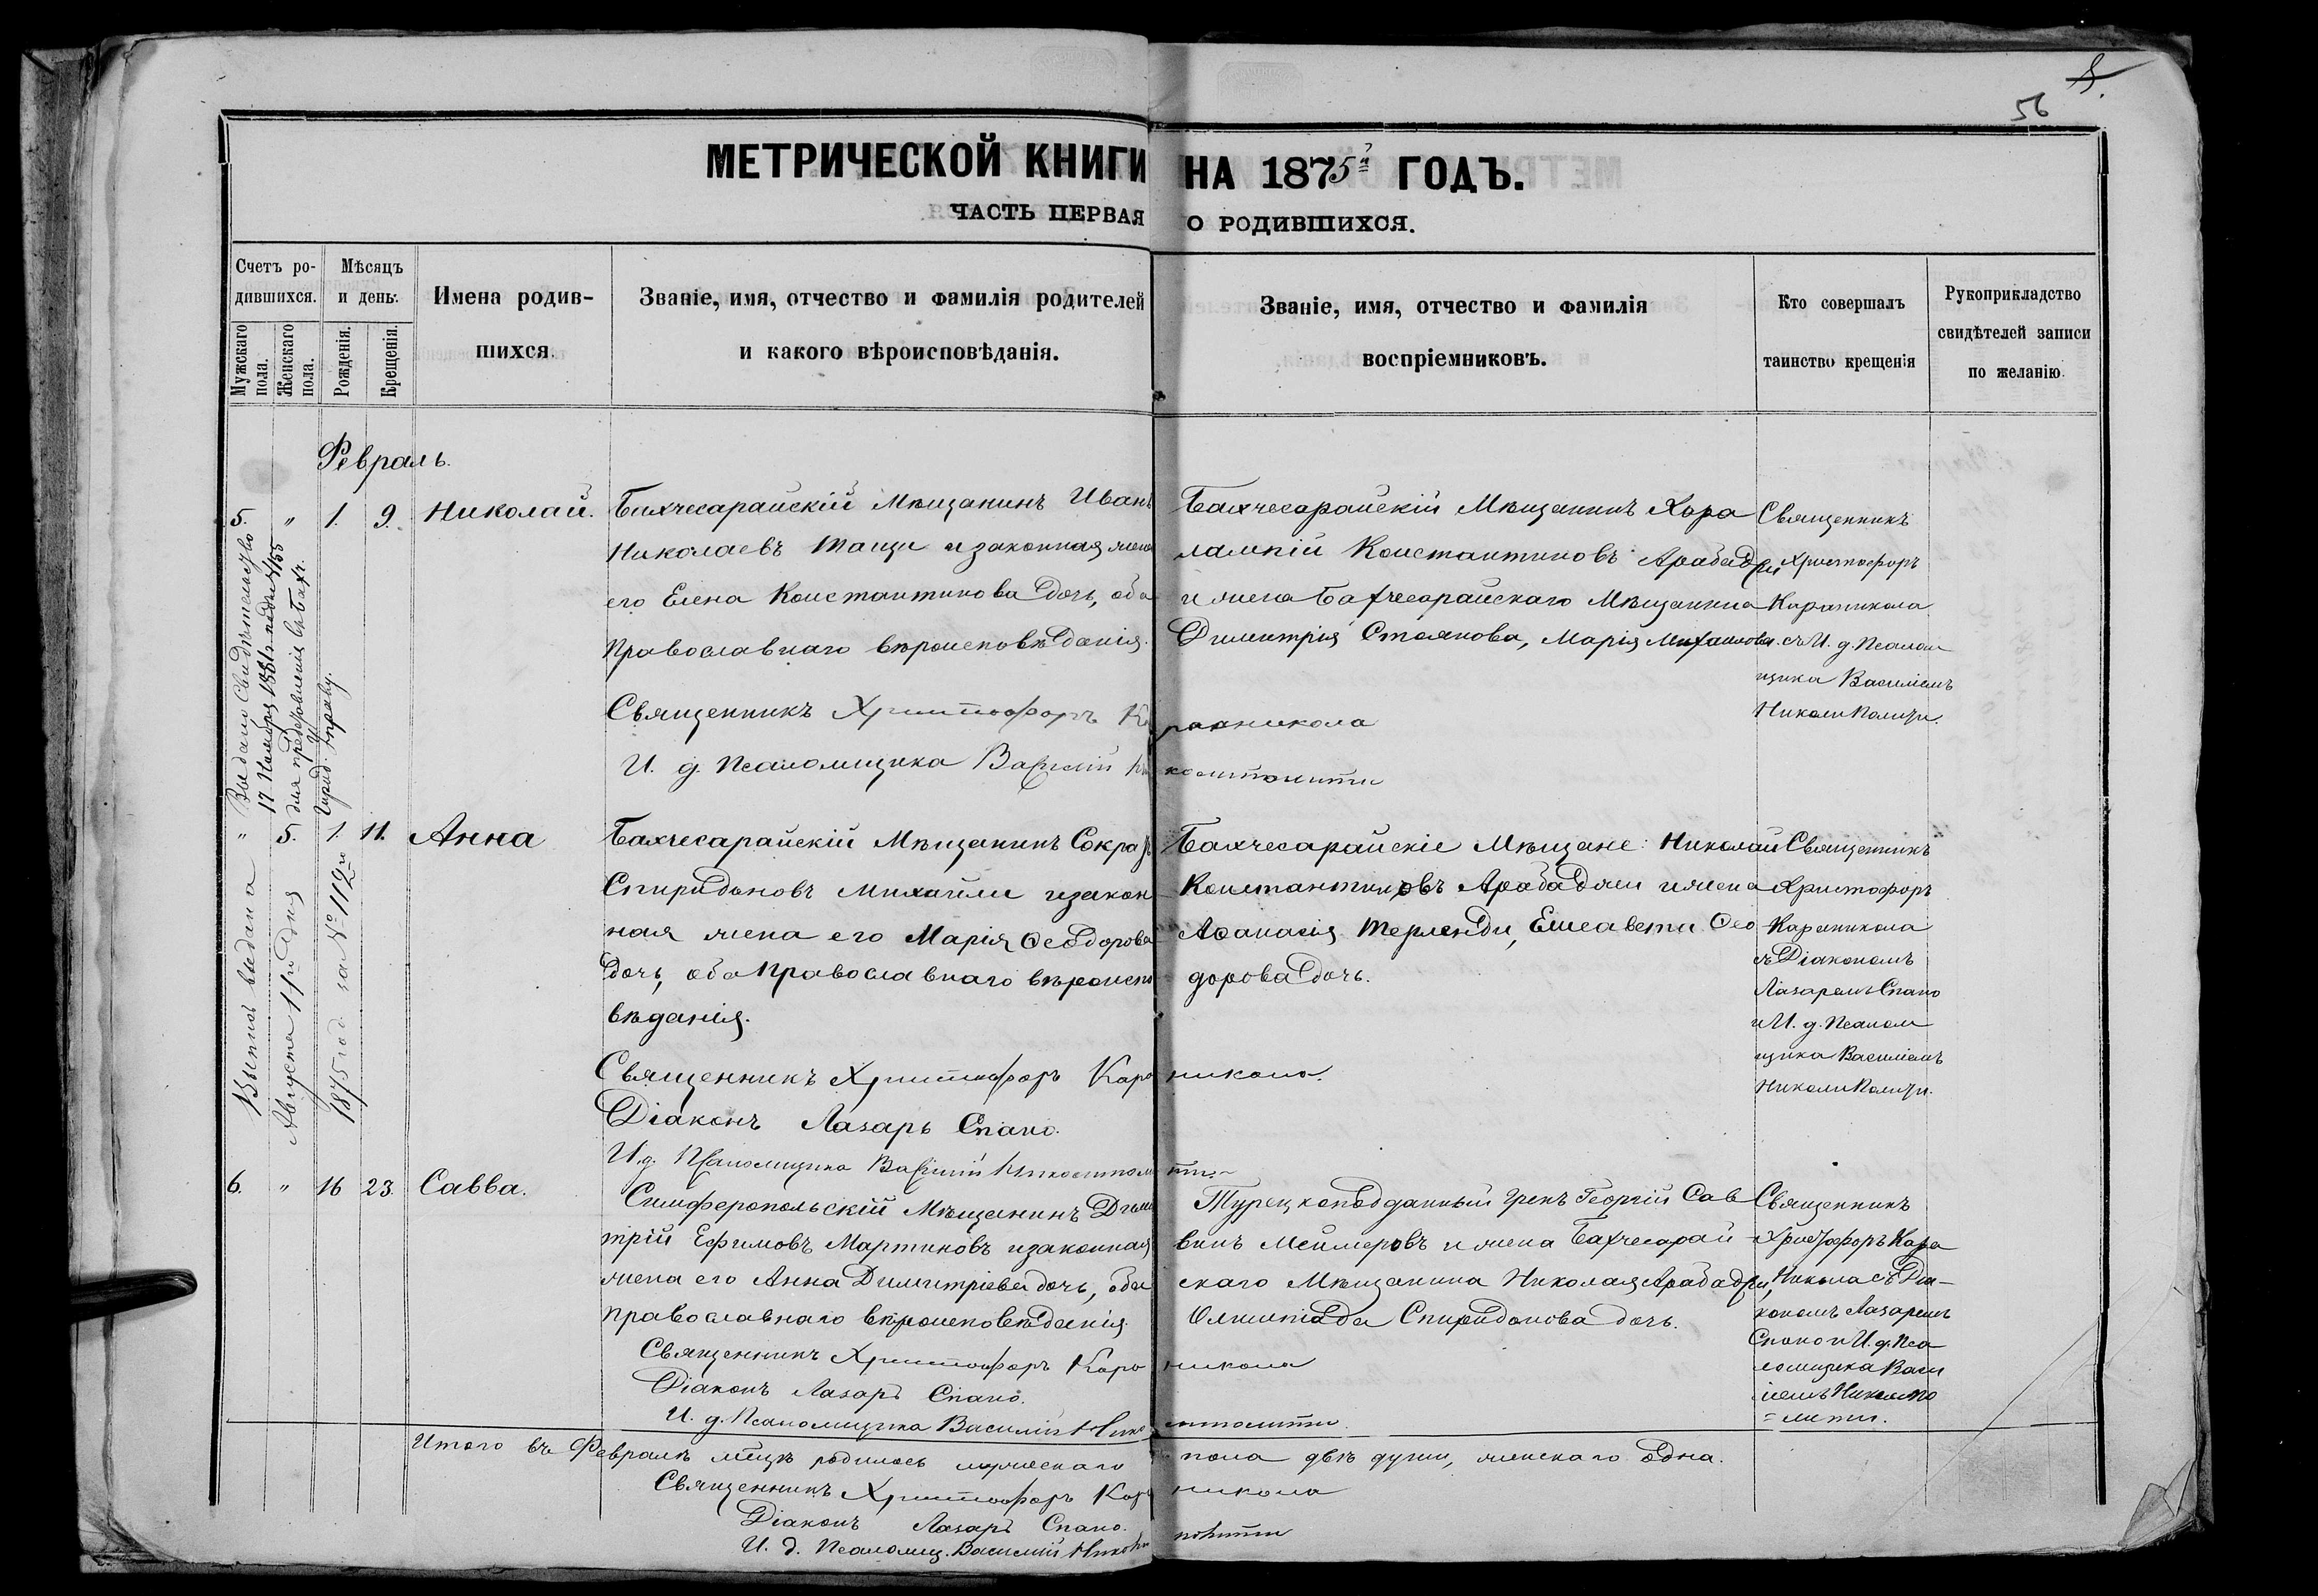 8.
56
МЕТРИЧЕСКОЙ КНИГИ НА 1875й ГОДЪ.
ЧАСТЬ ПЕРВАЯ О РОДИВШИХСЯ.
Счетъ ро-
дившихся.
Мужскаго
пола.
Женскаго
пола.
Мѣсяцъ
и день.
Рожденія.
Крещенія.
Имена родив-
шихся.
Званіе, имя, отчество и фамилія родителей
и какого вѣроисповѣданія.
Званіе, имя, отчество и фамилія
воспріемниковъ.
Кто совершалъ
таинство крещенія
Рукоприкладство
свидѣтелей записи
по желанію.
Февраль.
5. " 1. 9. Николай.
Бахчесарайскій Мѣщанинъ Иванъ
Николаевъ Тащи и законная жена
его Елена Константинова дочь, оба
Православнаго вѣроисповѣданія.
Священникъ Христофоръ Караникола
И. д. Псаломщика Василій
Бахчесарайскій Мѣщанинъ Хара
лампій Константиновъ Арабаджи
и жена Бахчесарайскаго Мѣщанина
Димитрія Стоянова, Марія Михаилова.
Священникъ
Христофоръ
Караникола
съ И. д. Псалом
щика Василіемъ
Выдано Свидѣтельство
17 Ноября 1881 г. подъ №155
для представленія въ Бахч.
Город. Управу.
" 5. 1. 11. Анна
Бахчесарайскій Мѣщанинъ Сократъ
Спиридоновъ Михайли и закон
ная жена его Марія Ѳеодорова
дочь, оба Православнаго вѣроиспо
вѣданія.
Священникъ Христофоръ Караникола.
Діаконъ Лазарь Спано.
И. д. Псаломщика Василій
Бахчесарайскіе Мѣщане: Николай
Константиновъ Арабаджи и жена
Аѳанасія Терленди, Елисавета Ѳео
дорова дочь.
Священникъ
Христофоръ
Караникола
съ Діакономъ
Лазаремъ Спано
и И. д. Псалом
щика Василіемъ
Выпись выдана
Августа 11го дня
1875 год за № 112м
6. " 16 23. Савва.
Симферопольскій Мѣщанинъ Дими
трій Ефимовъ Мартиновъ и законная
жена его Анна Димитріева дочь, оба
Православнаго вѣроисповѣданія
Священникъ Христофоръ Караникола
Діаконъ Лазарь Спано.
И. д. Псаломщика Василій
Турецкоподданный Грекъ Георгій Сав
винъ Меймеровъ и жена Бахчесарай-
скаго Мѣщанина Николая Арабаджи,
Олимпіада Спиридонова дочь.
Священникъ
Христофоръ Кара
Никола съ Діа-
кономъ Лазаремъ
Спано и И. д. Пса
ломщика Васи
ліемъ
Итого въ Февралѣ мцѣ родилось мужескаго пола двѣ души, женскаго одна.
Священникъ Христофоръ Караникола
Діаконъ Лазарь Спано.
И. д. Псаломщ. Василій